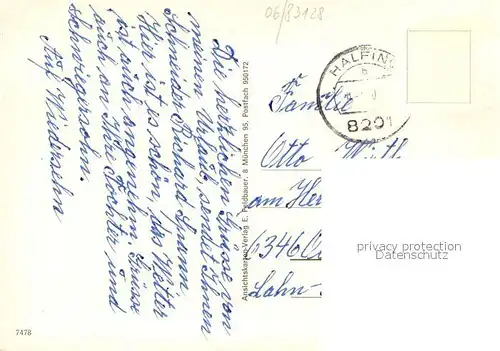 06/83128
HALFING
b
8201
Die herzlichen Grüsse von
meinen Urlaub, sendet Ihnen
Schneider Richard
Hier ist es schön, das Wetter
ist auch angenehm. Grüsse
auch an Ihre Tochter und
schwiegersohn.
Auf Wiedersehn
Ansichtskarten-Verlag E. Feldbauer, 8 München 95, Postfach 950172
Familie
Otto
am Her
6346
Lahn-
privacy protection
oldthing.de
7478